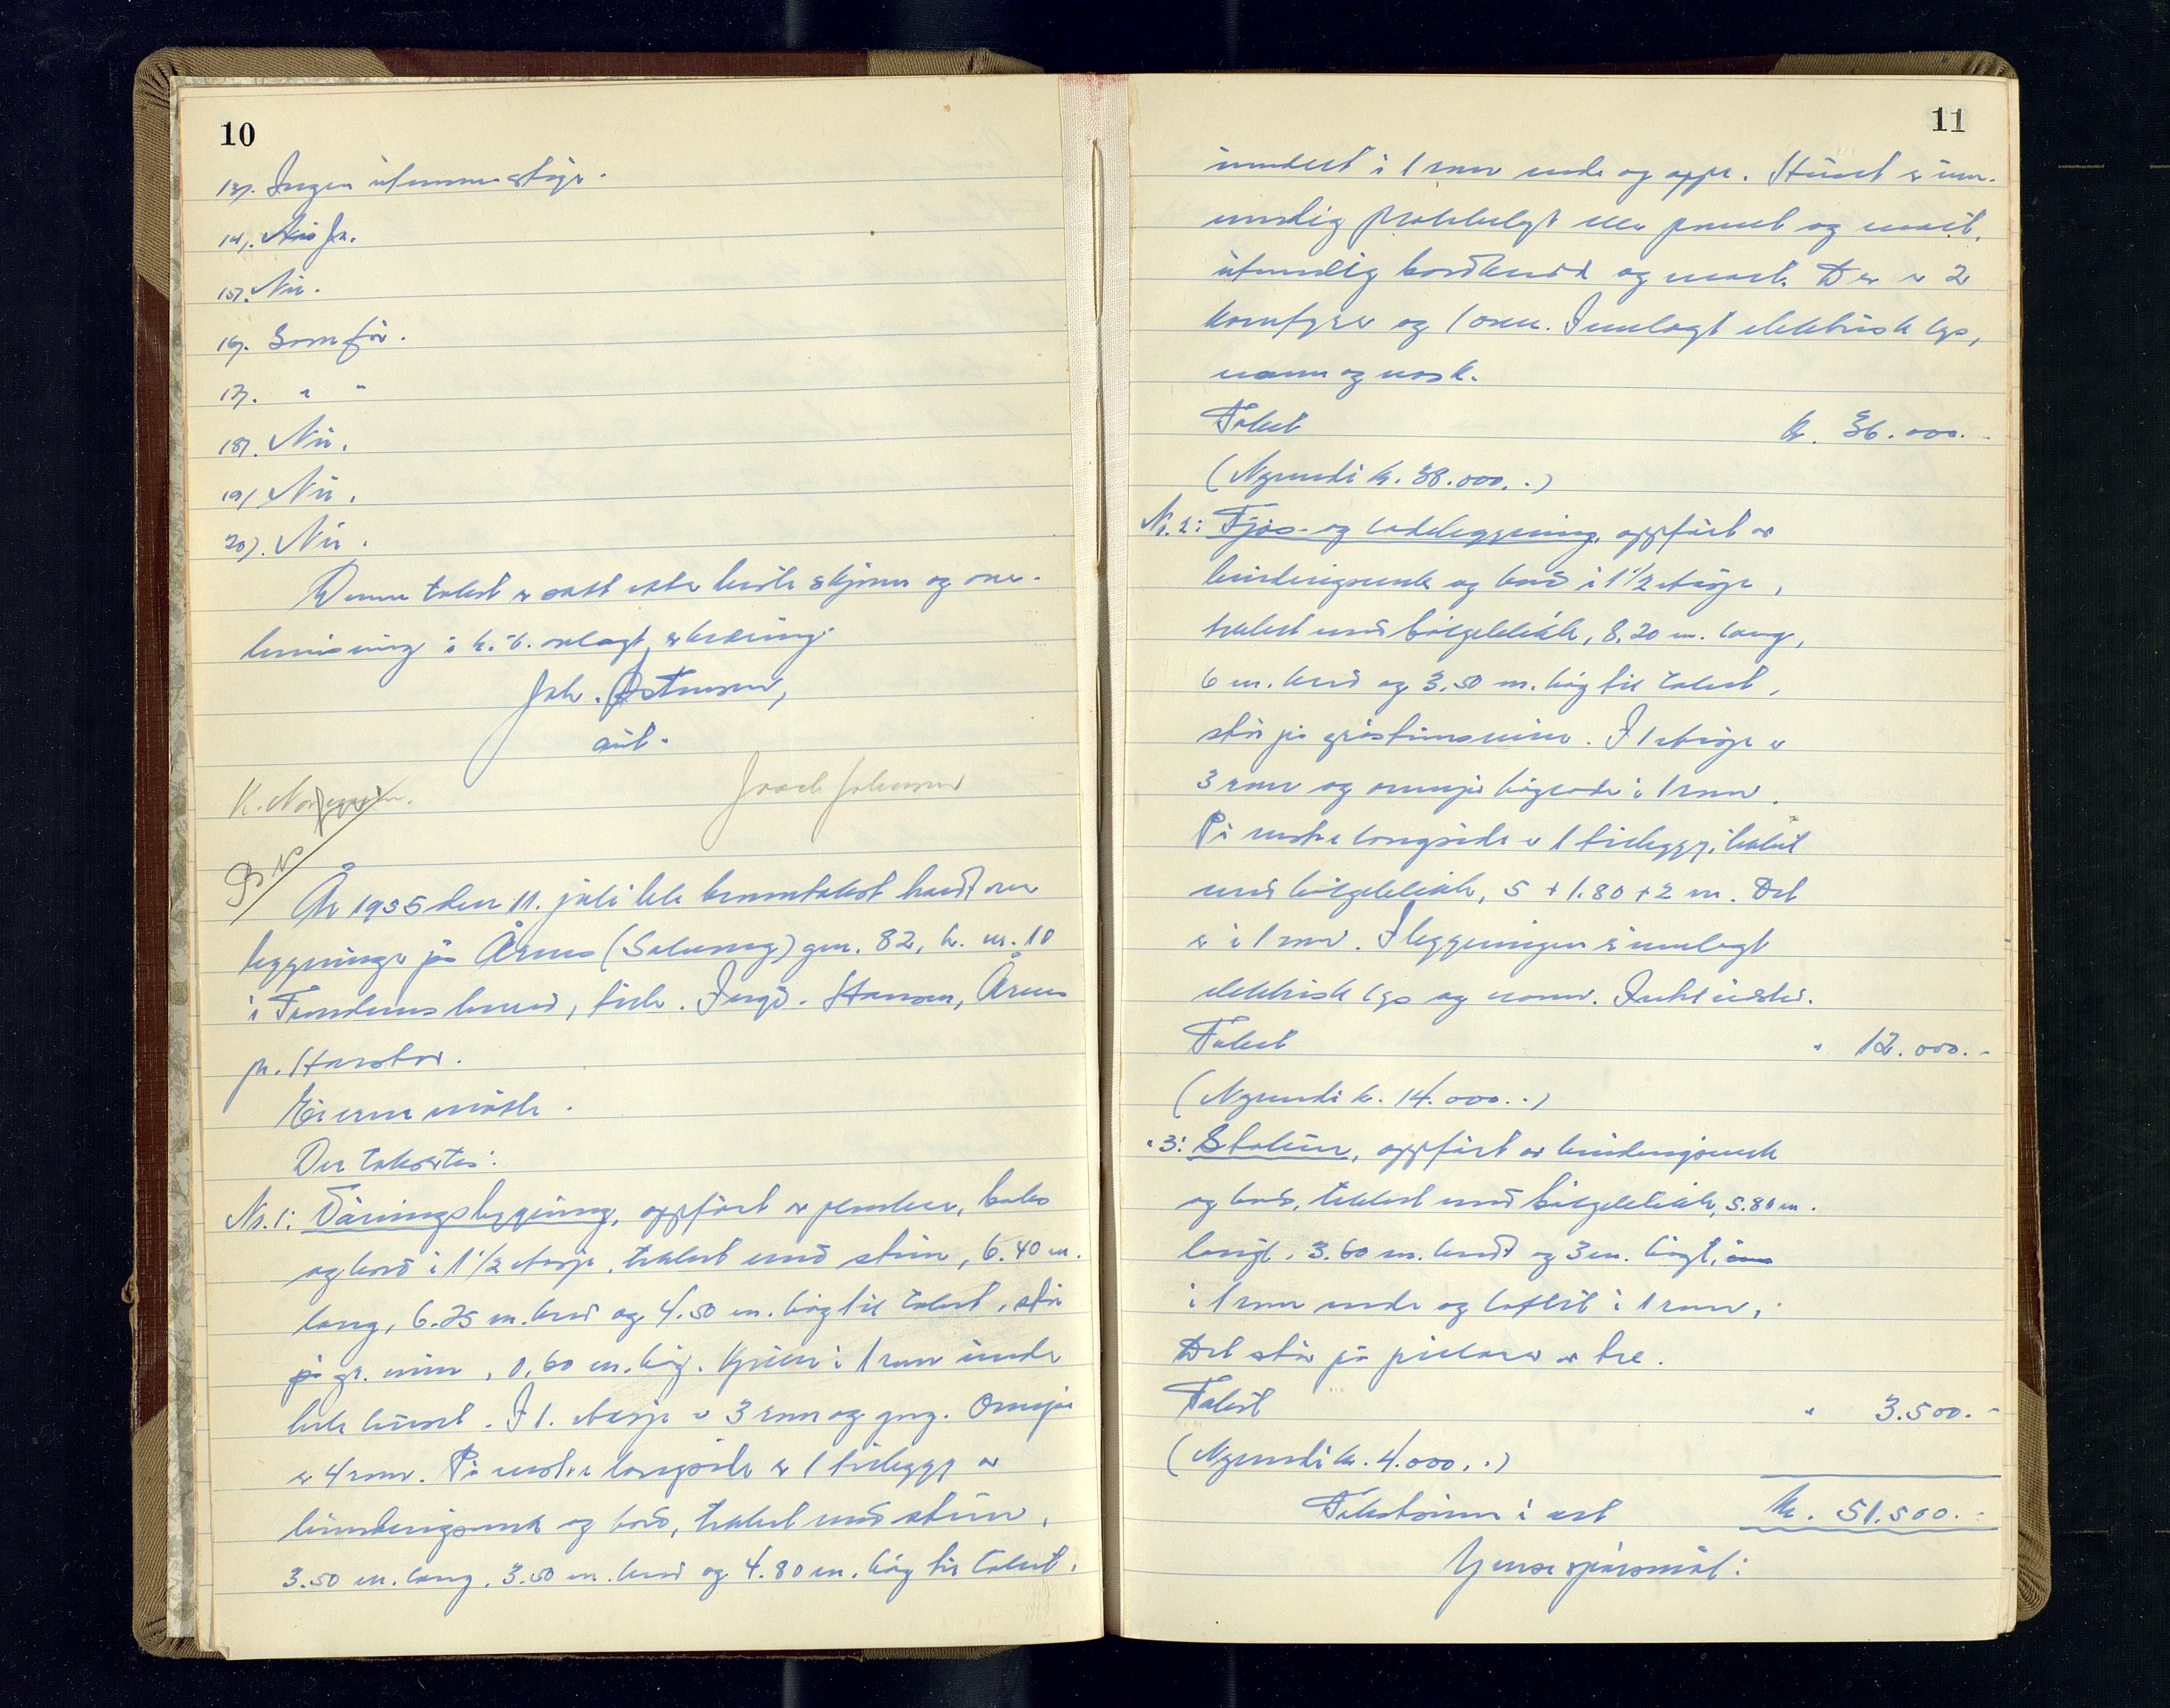 10
13). Ingen utenmerstige.
14). Nei Ja.
15). Nei.
16). Som før.
17). " "
18). Nei.
19) Nei.
20). Nei.
Denne takst er satt etter beste skjønn og over-
bevisning i h. t. avlagt erklæring.
Joh. Østensen,
aut.
Isach Johansen
K. Norgga
År 1955 den 11. juli ble branntakst holdt over
bygninger på Årnes (Solvang) gnr. 82, br. nr. 10
i Trondenes herred, tilh. Ingv. Hansen, Årnes
pr. Harstad.
Eieren møtte.
Der taksertes:
Nr. 1: Våningsbygning, oppført av planker, laks
og bord i 1 1/2 etasje, tekket med stein, 6.40 m.
lang, 6.25 m. bred og 4.50 m. høg til taket, står
på gr. mur, 0,60 m. høg. Kjeller i 1 rom under
hele huset. I 1. etasje er 3 rom og gang. Ovenpå
er 4 rom. På østre langside er 1 tilbygg av
bindingsverk og bord, tekket med stein,
3.50 m. lang, 3.50 m. bred og 4.80 m. høg til taket,
11
innredet i 1 rom nede og oppe. Huset er inn-
vendig platebelagt eller panelt og malt,
utvendig bordkledd og malt. Der er 2
komfyrer og 1 ovn. Innlagt elektrisk lys,
vann og vask.
Takst kr. 36.000.-
(Nyverdi kr. 38.000.-)
Nr. 2: Fjøs- og ladebygning, oppført av
bindingsverk og bord i 1 1/2 etasje,
tekket med bølgeblikk, 8,20 m. lang,
6 m. bred og 3.50 m. høg til taket,
står på gråsteinsmur. I 1 etasje er
3 rom og ovenpå høylade i 1 rom.
På vestre langside er 1 tilbygg, tekket
med bølgeblikk, 5 + 1.80 + 2 m. Det
er i 1 rom. I bygningen er innlagt
elektrisk lys og vann. Intet ildsted.
Takst " 12.000.-
(Nyverdi kr. 14.000.-)
" 3: Stabur, oppført av bindingsverk
og bord, tekket med bølgeblikk, 5.80 m.
langt, 3.60 m. bredt og 3 m. høgt, inn
i 1 rom nede og loftet i 1 rom,
Det står på pillarer av tre.
Takst " 3.500.-
(Nyverdi kr. 4.000.-)
Takstsum i alt kr. 51.500.-
Gjensvarspørsmål: